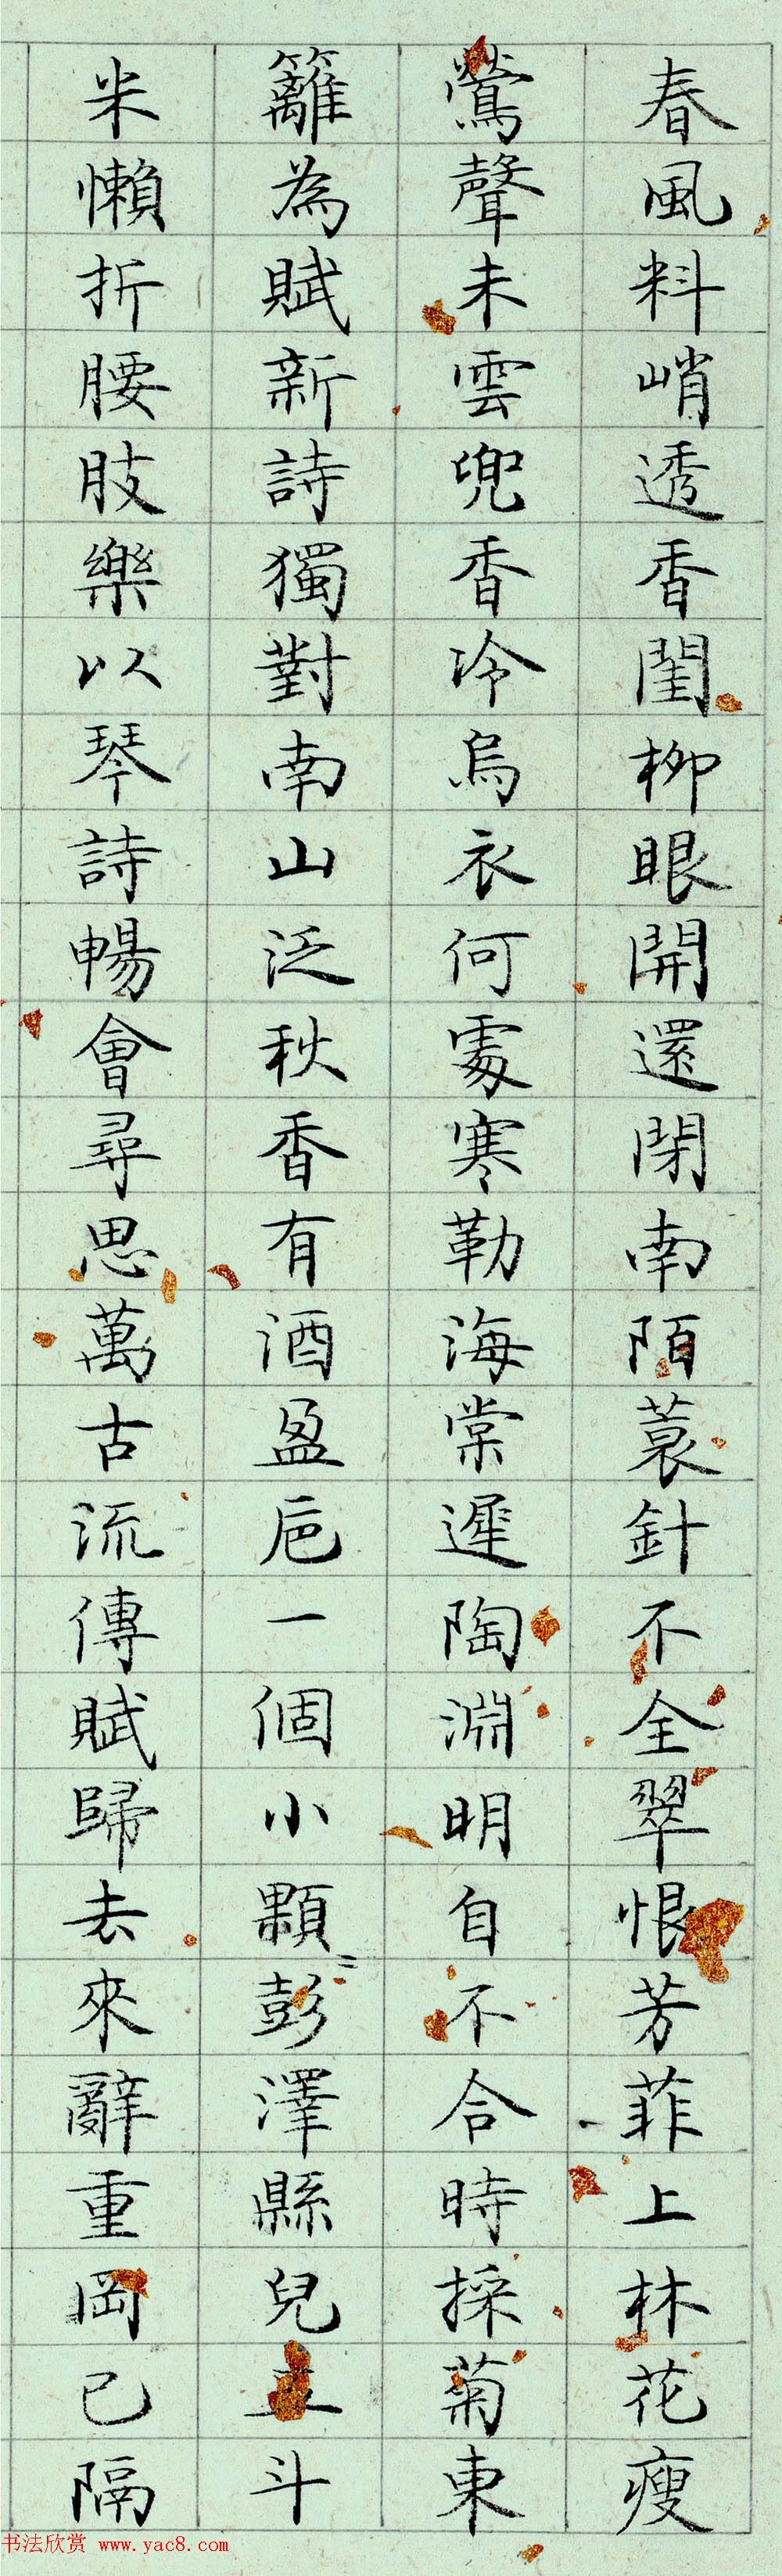 春風料峭透香閨柳眼開還閉南陌蓑針不全翠恨芳菲上林花瘦
鶯聲未雲兜香冷烏衣何處寒勒海棠遲陶淵明自不合時採菊東
籬為賦新詩獨對南山泛秋香有酒盈巵一個小顆〻彭澤縣兒五斗
米懶折腰肢樂以琴詩暢會尋思萬古流傳賦歸去來辭重岡已隔
书法欣赏 www.yac8.com